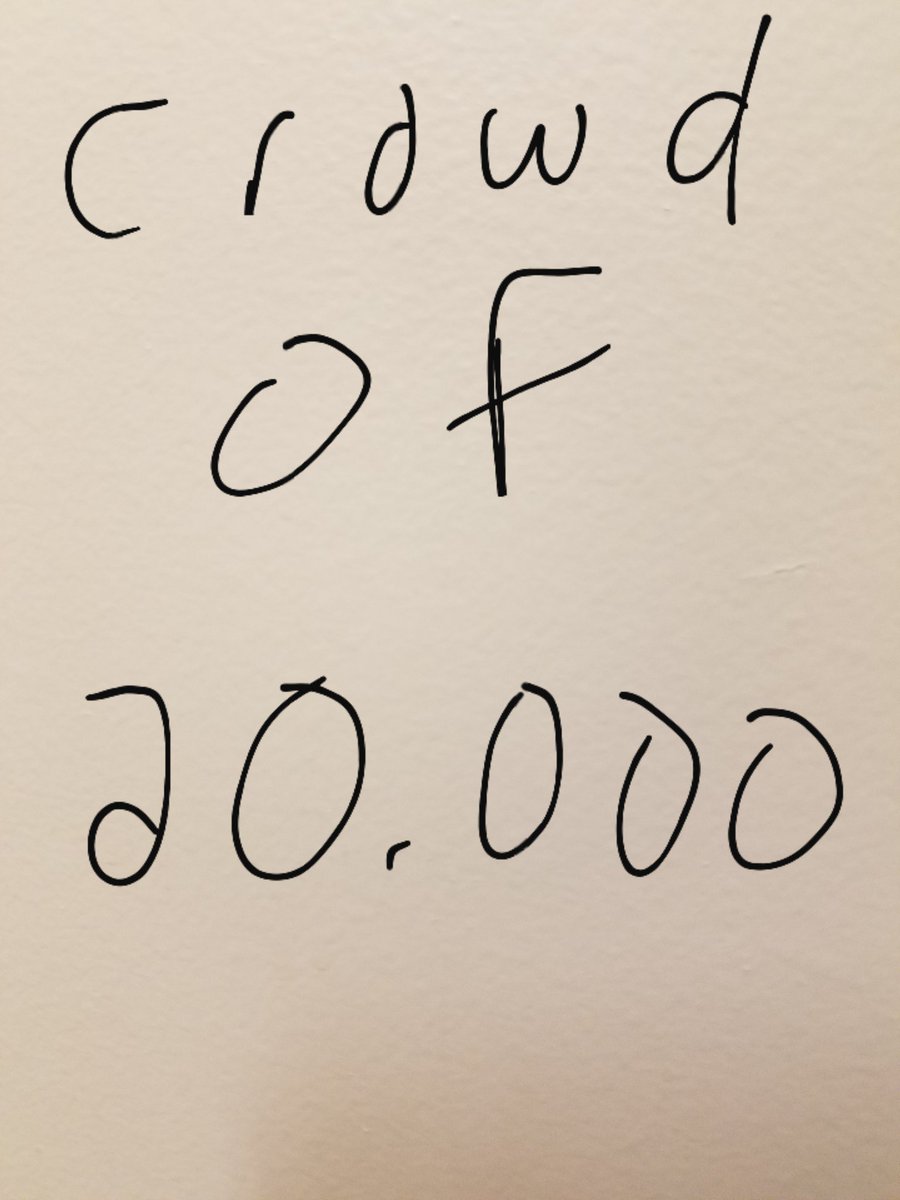 Crowd
OF
20.000